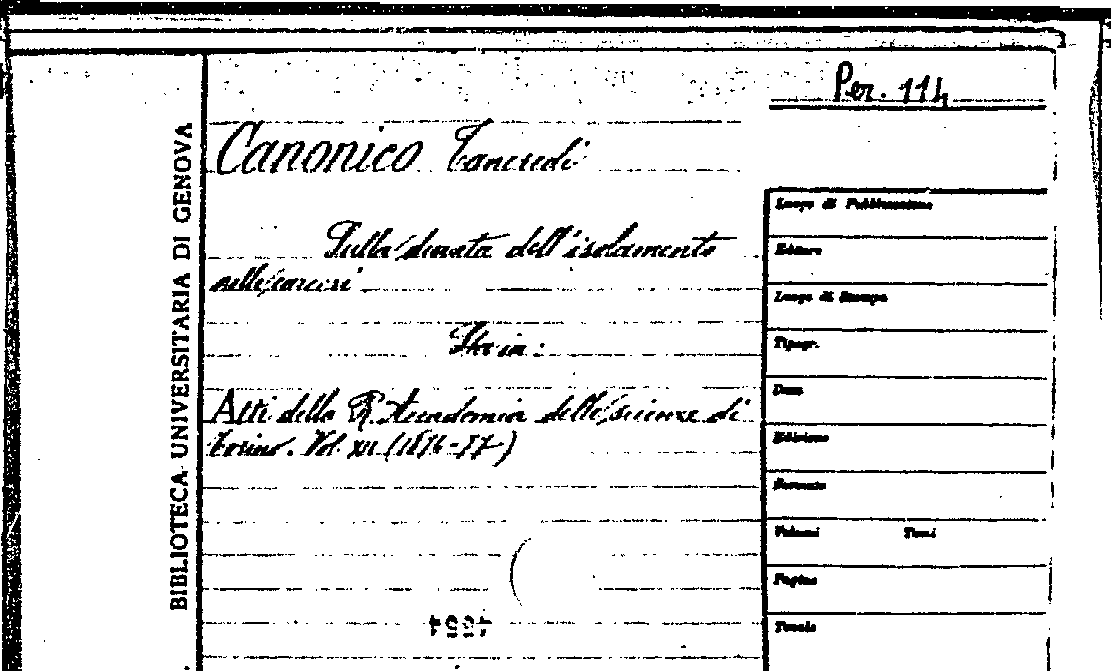 Per. 114
BIBLIOTECA UNIVERSITARIA DI GENOVA
Canonico Tancredi
Sulla durata dell'isolamento
nelle carceri
Sta in:
Atti della R. Accademia delle scienze di
Torino. Vol. XII (1876-77)
Luogo di Pubblicazione
Editore
Luogo di Stampa
Tipogr.
Data
Edizione
Formato
Volumi Tomi
Pagine
Tavole